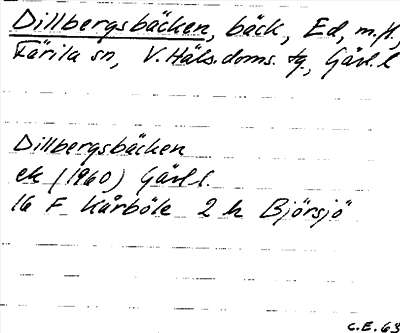 Dillbergsbäcken, bäck, Ed, m.fl.,
Färila sn, V. Häls. doms. tg., Gävl. l
Dillbergsbäcken
ek (1960) Gävl l.
16 F Kårböle 2 h Björsjö
C.E. 63